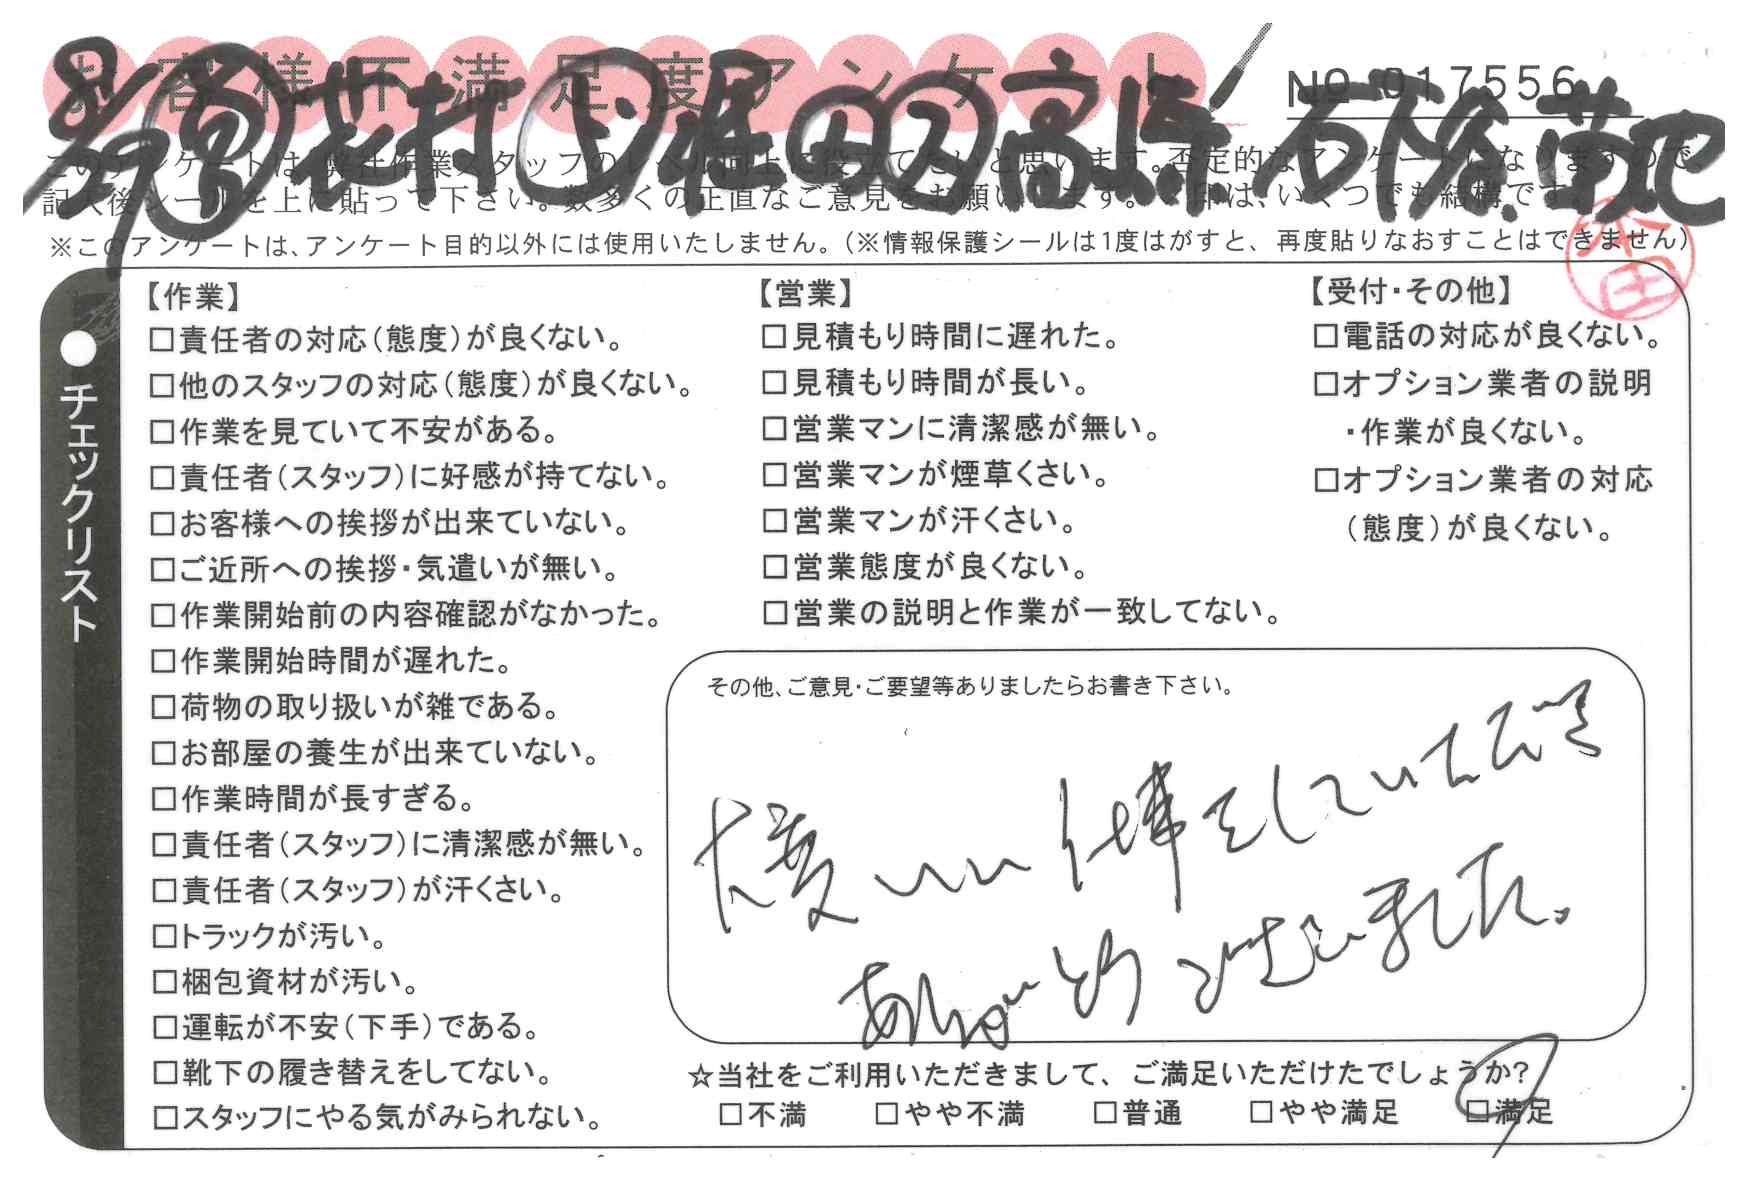 お客様不満足度アンケート
NO 017556
8/29 営 花村 ト 堀田 又 高崎 石倉 菊地
このアンケートは、弊社作業スタッフのレベル向上に役立てたいと思います。否定的なアンケートになりますので
記入後シールを上に貼って下さい。数多くの正直なご意見をお願いします。✓印は、いくつでも結構です。
※このアンケートは、アンケート目的以外には使用いたしません。(※情報保護シールは1度はがすと、再度貼りなおすことはできません)
本田
チェックリスト
【作業】
□責任者の対応(態度)が良くない。
□他のスタッフの対応(態度)が良くない。
□作業を見ていて不安がある。
□責任者(スタッフ)に好感が持てない。
□お客様への挨拶が出来ていない。
□ご近所への挨拶・気遣いが無い。
□作業開始前の内容確認がなかった。
□作業開始時間が遅れた。
□荷物の取り扱いが雑である。
□お部屋の養生が出来ていない。
□作業時間が長すぎる。
□責任者(スタッフ)に清潔感が無い。
□責任者(スタッフ)が汗くさい。
□トラックが汚い。
□梱包資材が汚い。
□運転が不安(下手)である。
□靴下の履き替えをしてない。
□スタッフにやる気がみられない。
【営業】
□見積もり時間に遅れた。
□見積もり時間が長い。
□営業マンに清潔感が無い。
□営業マンが煙草くさい。
□営業マンが汗くさい。
□営業態度が良くない。
□営業の説明と作業が一致してない。
【受付・その他】
□電話の対応が良くない。
□オプション業者の説明
・作業が良くない。
□オプション業者の対応
(態度)が良くない。
その他、ご意見・ご要望等ありましたらお書き下さい。
大変いい仕事をしていただき
ありがとうございました。
☆当社をご利用いただきまして、ご満足いただけたでしょうか?
□不満 □やや不満 □普通 □やや満足 □満足